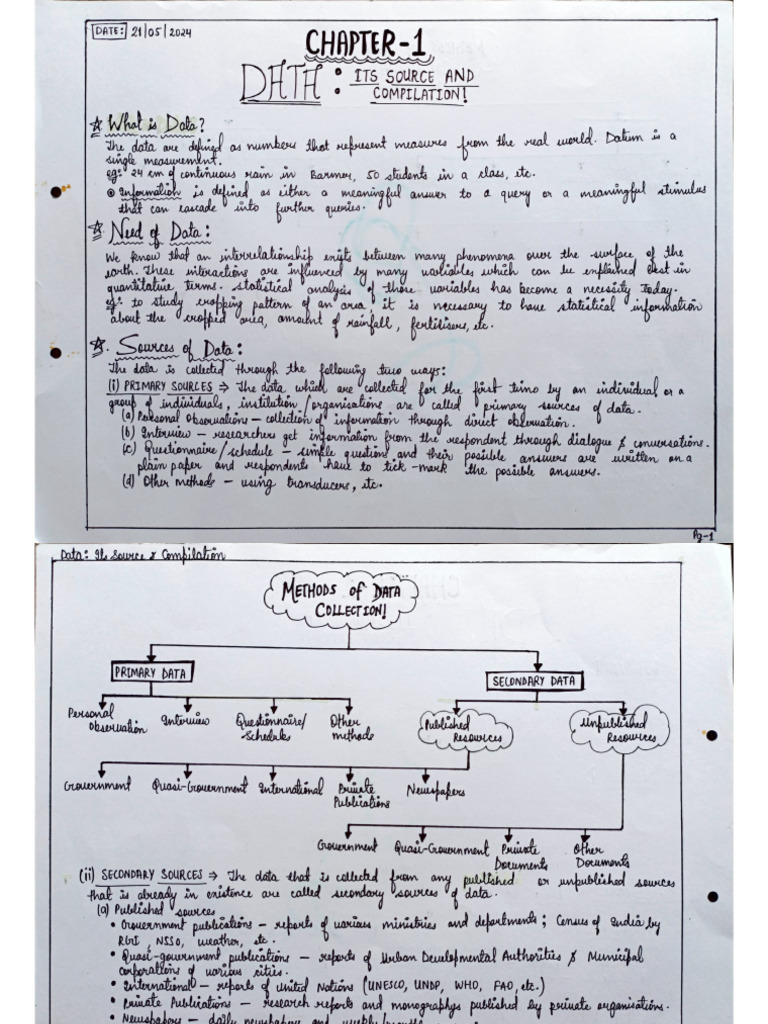 DATE: 21/05/2024
CHAPTER-1
DATA : ITS SOURCE AND
COMPILATION!
What is Data?
The data are defined as numbers that represent measures from the real world. Datum is a
single measurement.
eg: 24 cm of continuous rain in Barmer, 50 students in a class, etc.
Information is defined as either a meaningful answer to a query or a meaningful stimulus
that can cascade into further queries.
Need of Data:
We know that an interrelationship exists between many phenomena over the surface of the
earth. These interactions are influenced by many variables which can be explained best in
quantitative terms. statistical analysis of those variables has become a necessity today.
eg: to study cropping pattern of an area it is necessary to have statistical information
about the cropped area, amount of rainfall, fertilisers, etc.
Sources of Data:
The data is collected through the following two ways:
(i) PRIMARY SOURCES ⇒ The data which are collected for the first time by an individual or a
group of individuals, institution/organisations are called primary sources of data.
(a) Personal Observations – collection of information through direct observation.
(b) Interview – researchers get information from the respondent through dialogue & conversations.
(c) Questionnaire/schedule – simple question and their possible answers are written on a
plain paper and respondents have to tick-mark the possible answers.
(d) Other methods – using transducers, etc.
Pg-1
Data: Its Source & Compilation
METHODS of DATA
COLLECTION!
PRIMARY DATA
SECONDARY DATA
Personal
Observation
Interview
Questionnaire/
Schedules
Other
methods
Published
Resources
Unpublished
Resources
Government
Quasi-Government
International
Private
Publications
Newspapers
Government
Quasi-Government
Private
Documents
Other
Documents
(ii) SECONDARY SOURCES ⇒ The data that is collected from any published or unpublished sources
that is already in existence are called secondary sources of data.
(a) Published sources
• Government publications – reports of various ministries and departments; Census of India by
RGI, NSSO, weather, etc.
• Quasi-government publications – reports of Urban Developmental Authorities & Municipal
corporations of various cities.
• International – reports of United Nations (UNESCO, UNDP, WHO, FAO, etc.)
• Private Publications – research reports and monographys published by private organisations.
• Newspapers – daily newspapers and weekly/